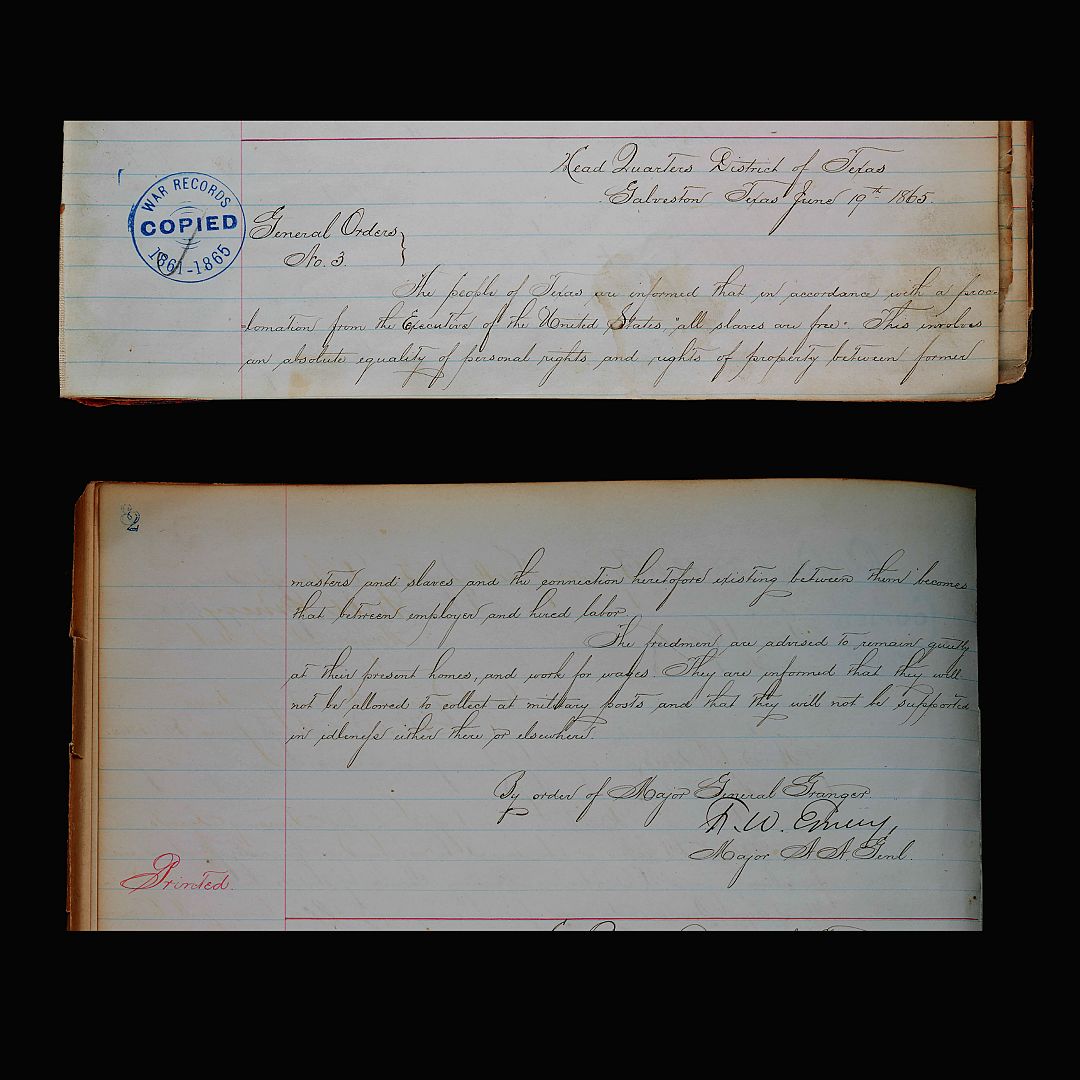 Head Quarters District of Texas
Galveston Texas June 19th 1865.
WAR RECORDS
COPIED
1861-1865
General Orders
No. 3.
The people of Texas are informed that in accordance with a proc-
lamation from the Executive of the United States, "all slaves are free". This involves
an absolute equality of personal rights and rights of property between former
2
masters and slaves and the connection heretofore existing between them becomes
that between employer and hired labor.
The freedmen are advised to remain quietly
at their present homes, and work for wages. They are informed that they will
not be allowed to collect at military posts and that they will not be supported
in idleness either there or elsewhere.
By order of Major General Granger
F. W. Emery,
Major A A Genl.
Printed.